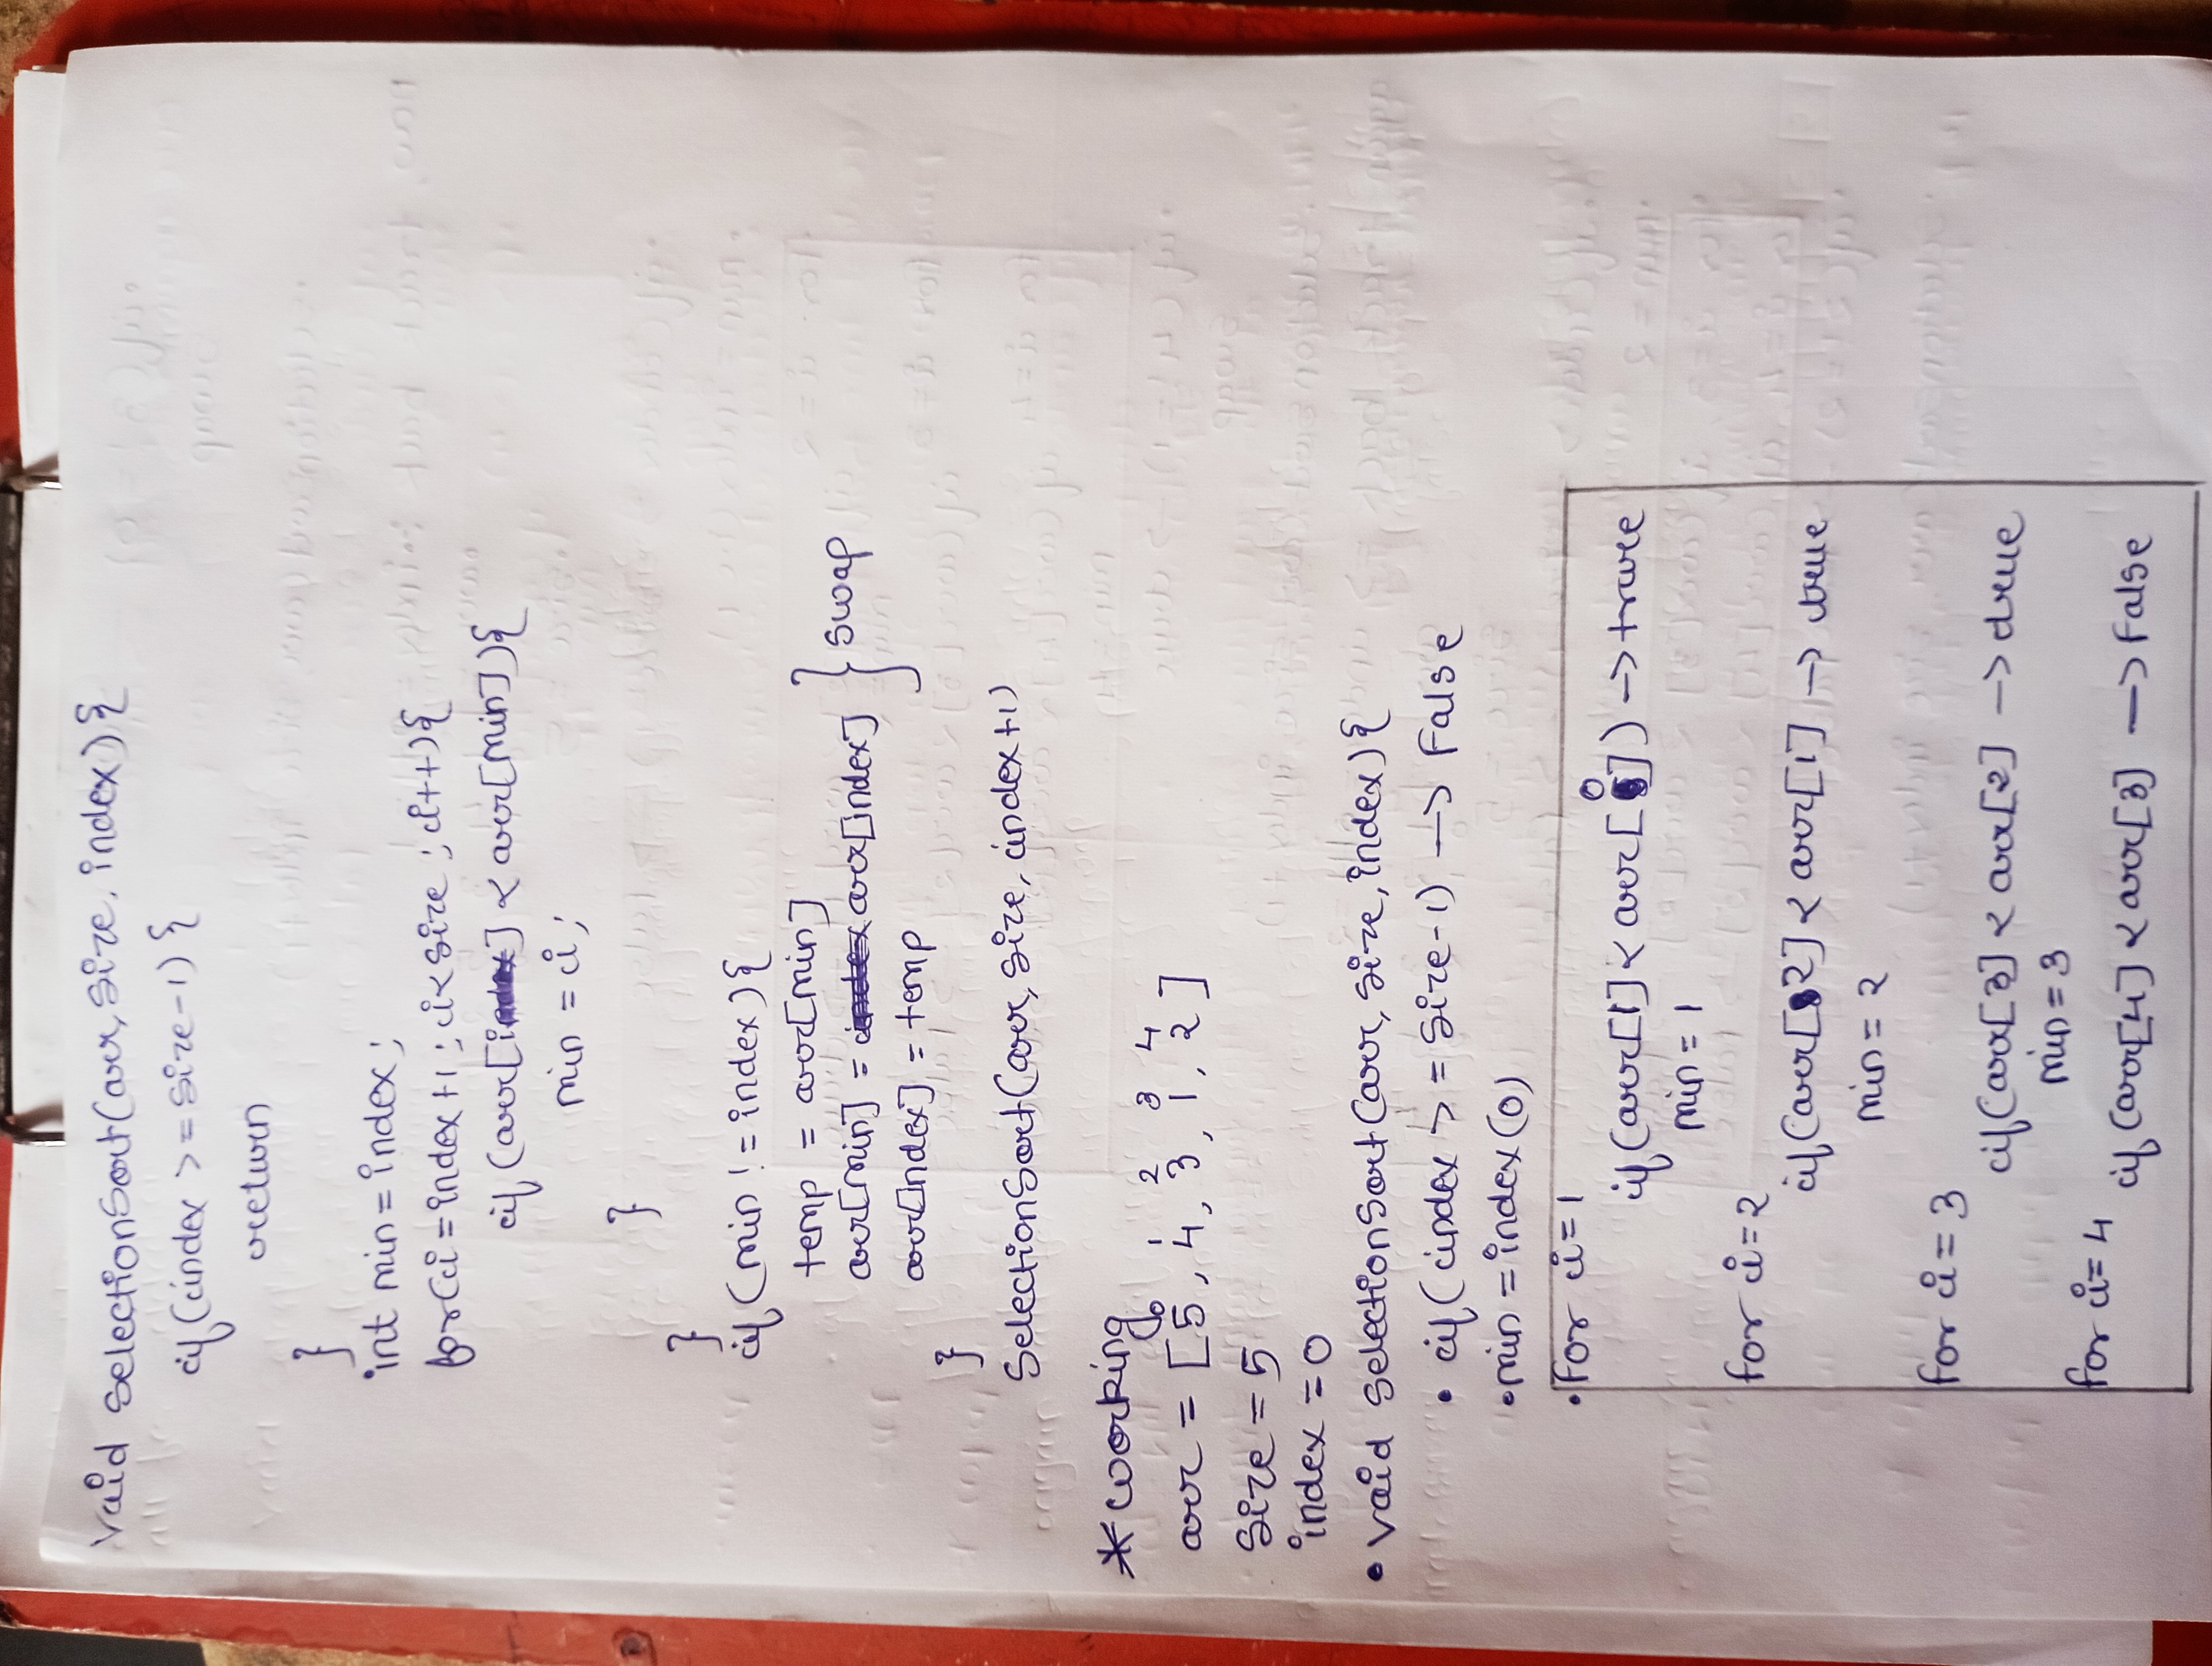 void SelectionSort(arr, size, index){
if(index >= size-1){
return
}
int min = index;
for(i = index+1; i<size; i++){
if (arr[i] < arr[min]){
min = i;
}
}
if (min != index){
temp = arr[min]
arr[min] = arr[index]
arr[index] = temp
} swap
}
SelectionSort(arr, size, index+1)
* working
0 1 2 3 4
arr = [5, 4, 3, 1, 2]
size = 5
index = 0
• void SelectionSort(arr, size, index){
• if( index >= size-1) -> False
• min = index(0)
• for i=1
if(arr[1] < arr[0]) -> true
min = 1
for i=2
if(arr[2] < arr[1] -> true
min = 2
for i=3
if(arr[3] < arr[2] -> true
min = 3
for i=4
if(arr[4] < arr[3] -> False